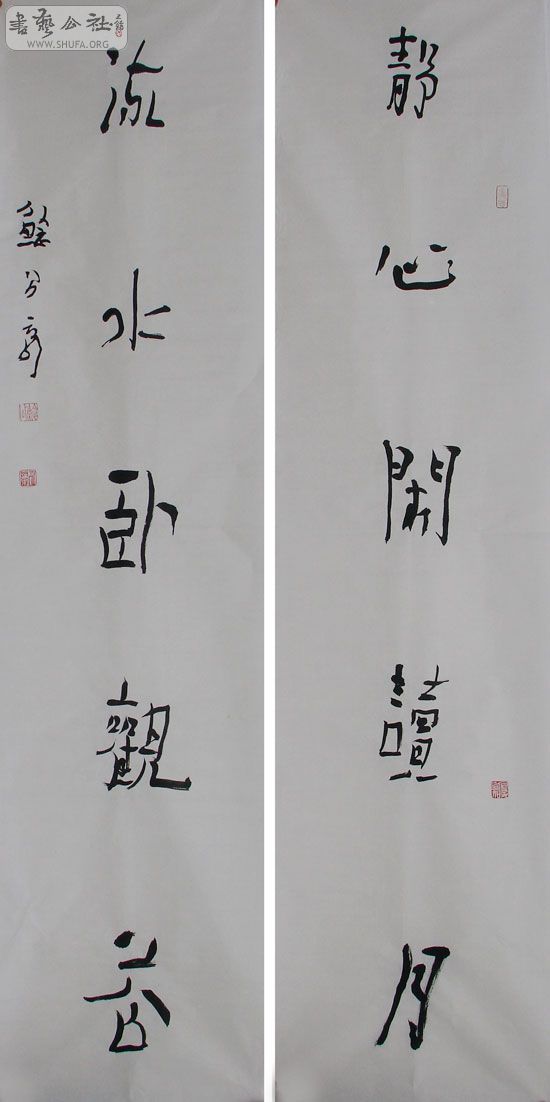 靜心閑讀月
流水卧觀音
書藝公社
WWW.SHUFA.ORG